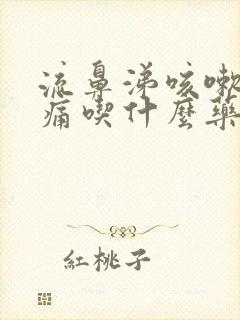 流鼻涕咳嗽
痛喫什麼藥
紅桃子